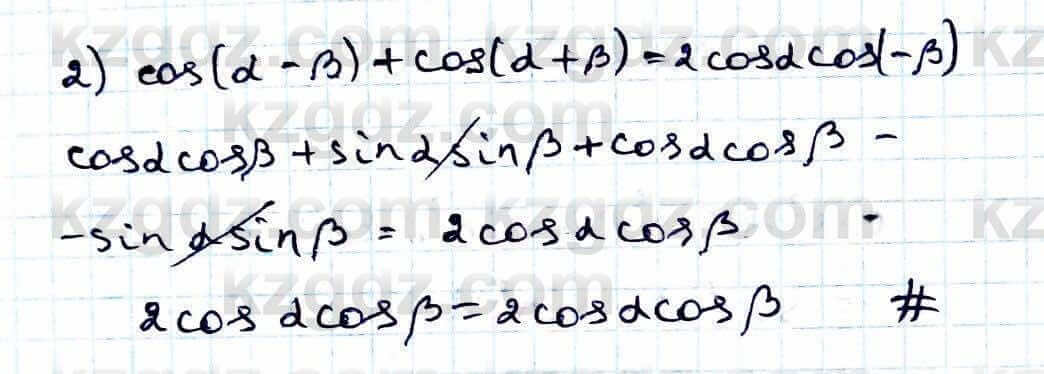 2) cos(α - β) + cos(α + β) = 2cosα cos(-β)
cosα cosβ + sinα sinβ + cosα cosβ -
- sinα sinβ = 2cosα cosβ.
2cosα cosβ = 2cosα cosβ #